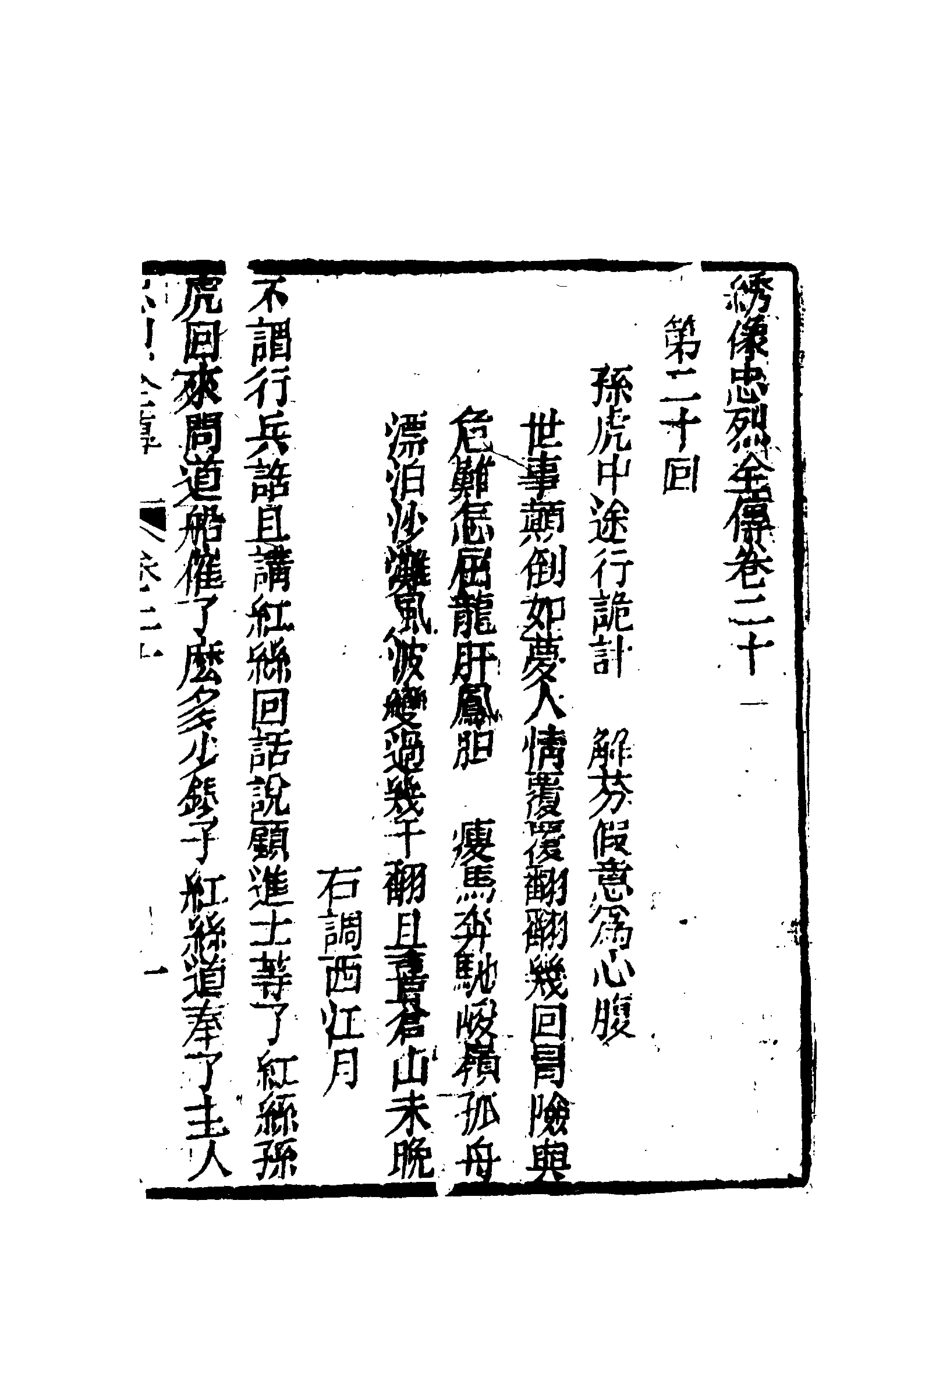 綉像忠烈全傳卷二十
第二十回
孫虎中途行詭計　解芬假意為心腹
世事顛倒如夢人情覆覆翻翻幾回冒險與
危難怎屈龍肝鳳胆　瘦馬奔馳峻嶺孤舟
漂泊沙灘風波變過幾千翻且喜倉山未晚
右調西江月
不謂行兵話且講紅絲回話說顧進士等了紅絲孫
虎回來問道船僱了麽多少銀子紅絲道奉了主人
忠烈全傳　卷二十　一